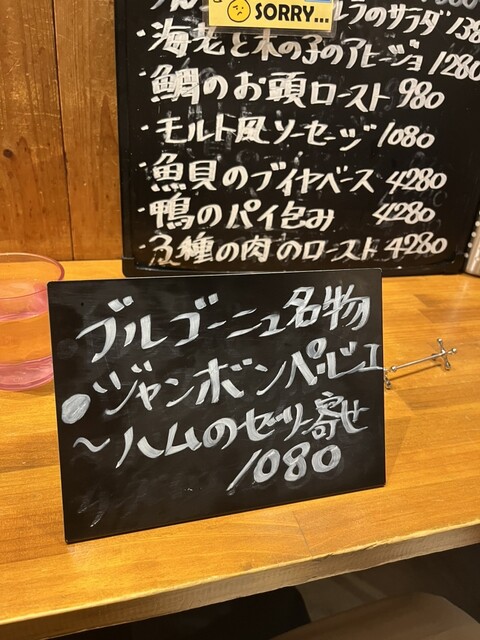 SORRY...
ルラのサラダ 138
・海老と木の子のアヒージョ 1280
・鯛のお頭ロースト 980
・モルト風ソーセージ 1080
・魚貝のブイヤベース 4280
・鴨のパイ包み 4280
・3種の肉のロースト 4280
ブルゴーニュ名物
●ジャンボンペルシェ
〜ハムのゼリー寄せ
1080